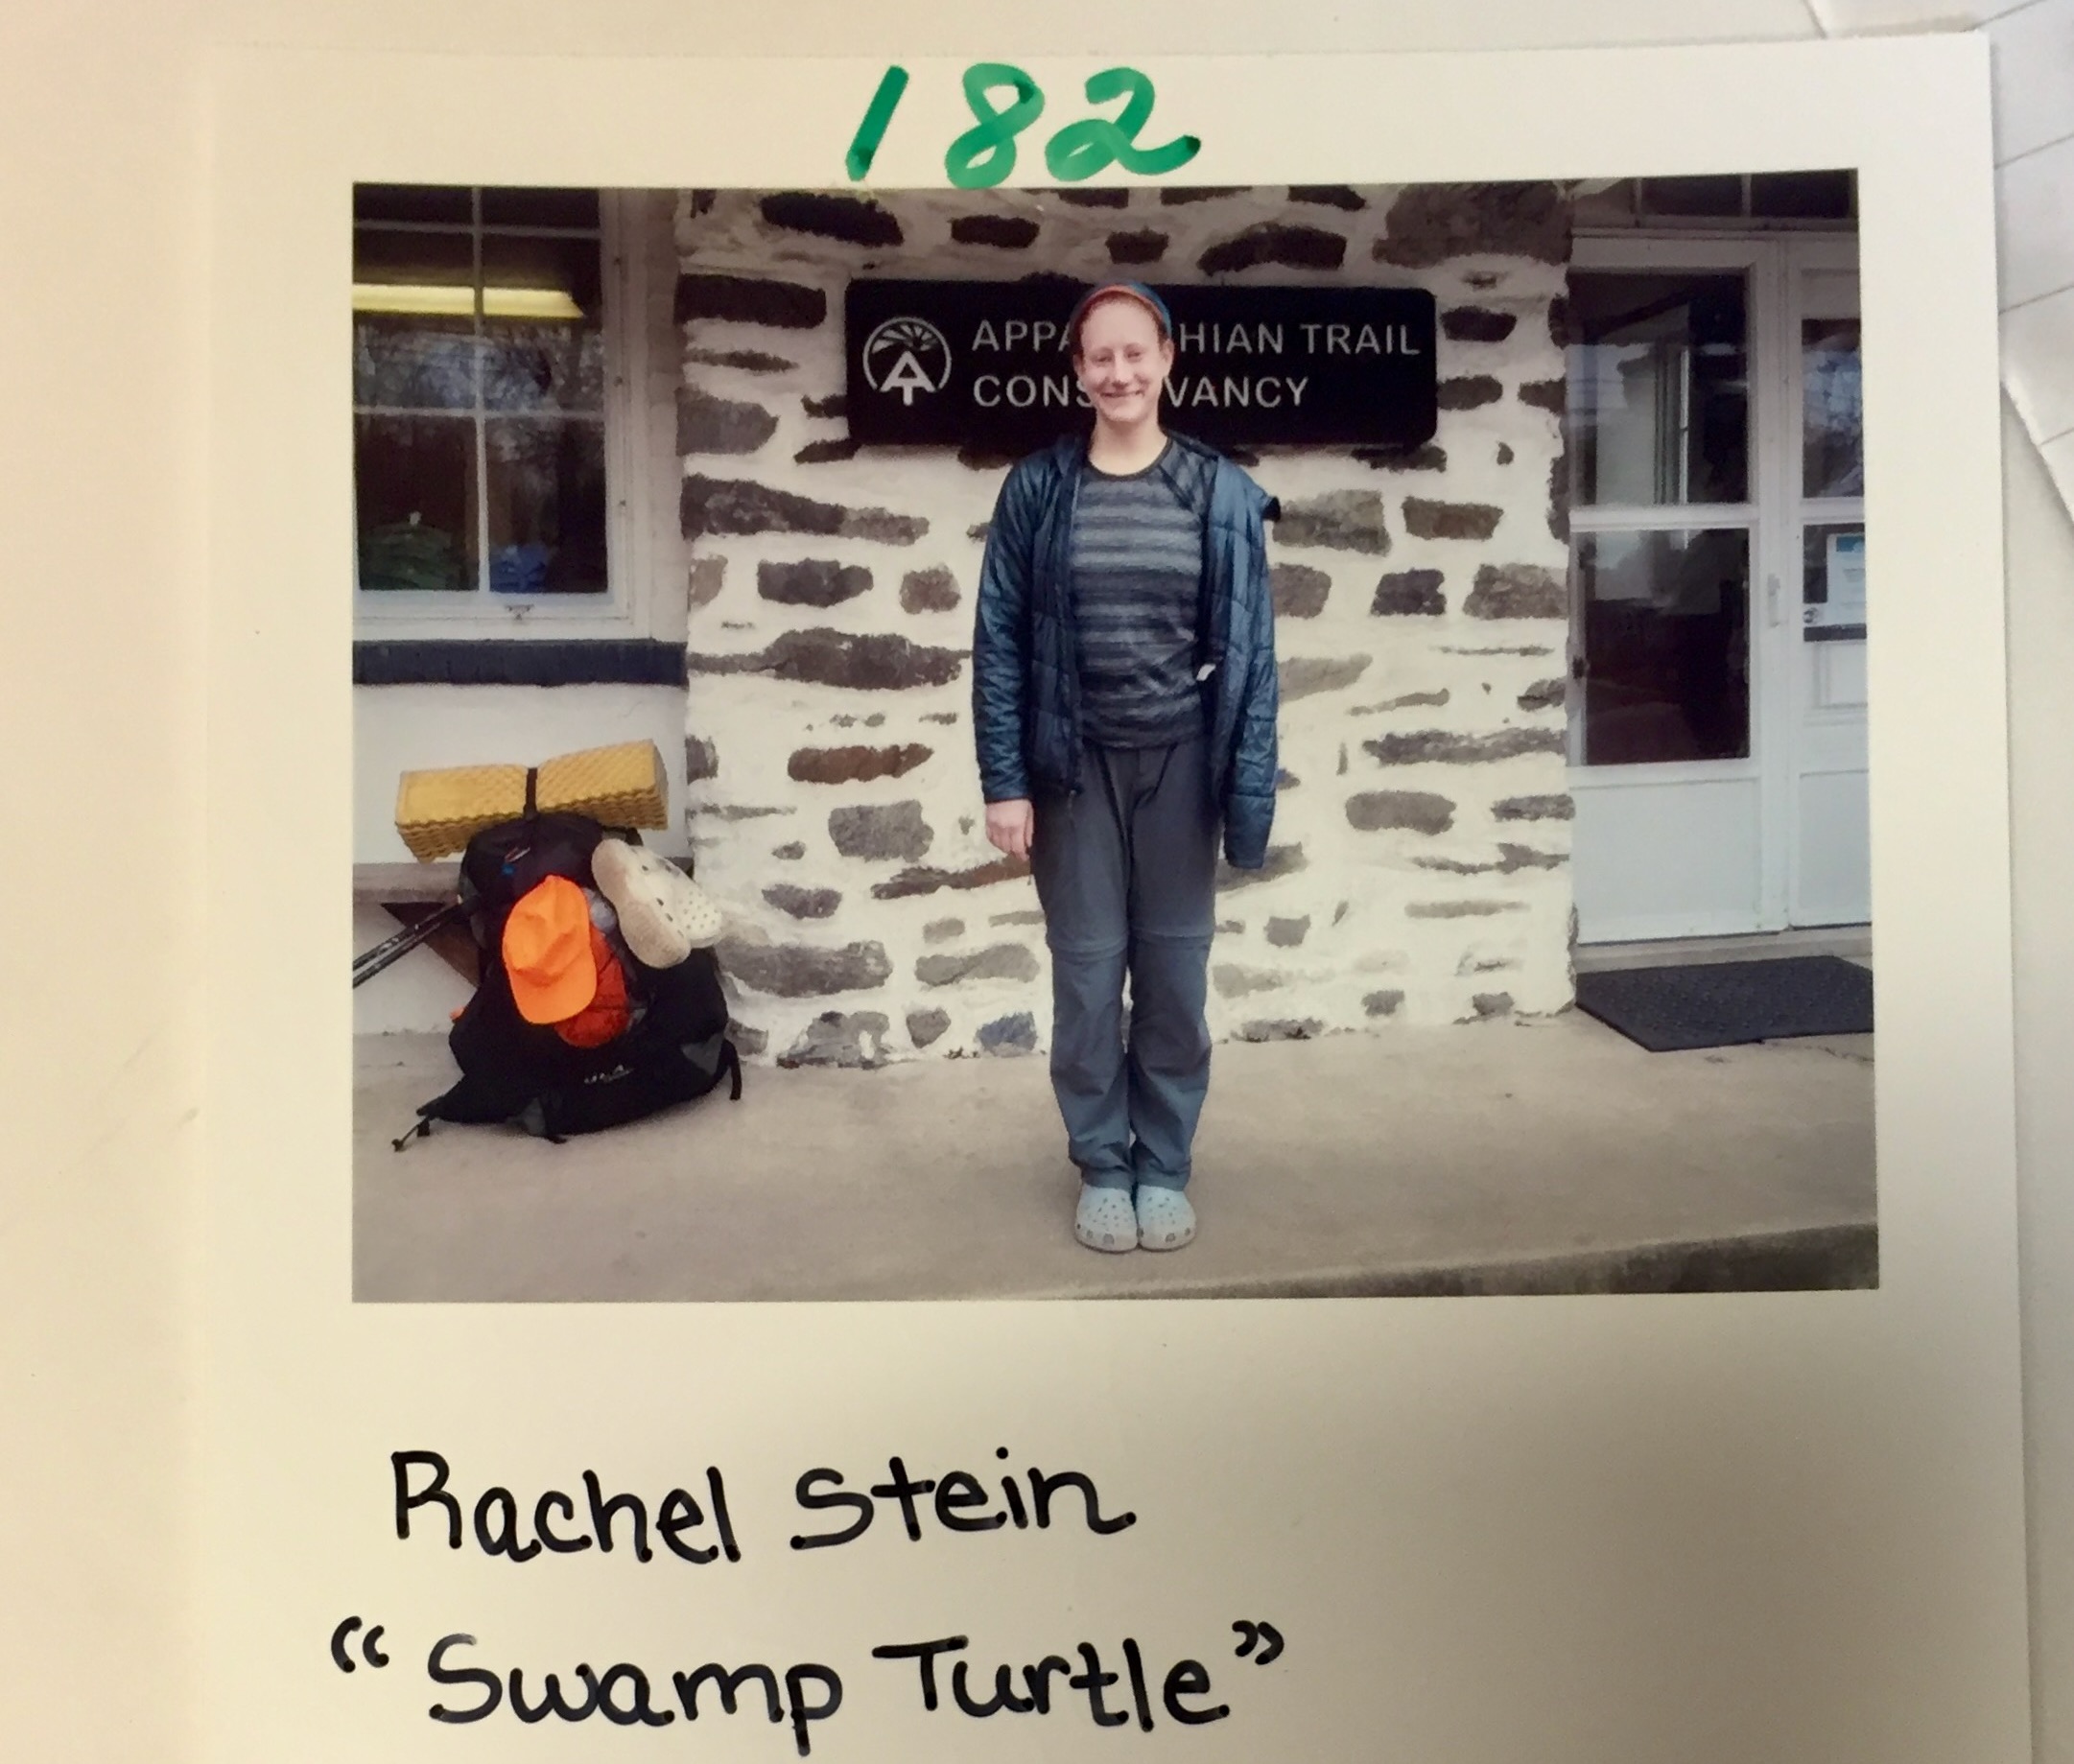 182
APPA HIAN TRAIL
CONS VANCY
Rachel Stein
“Swamp Turtle”